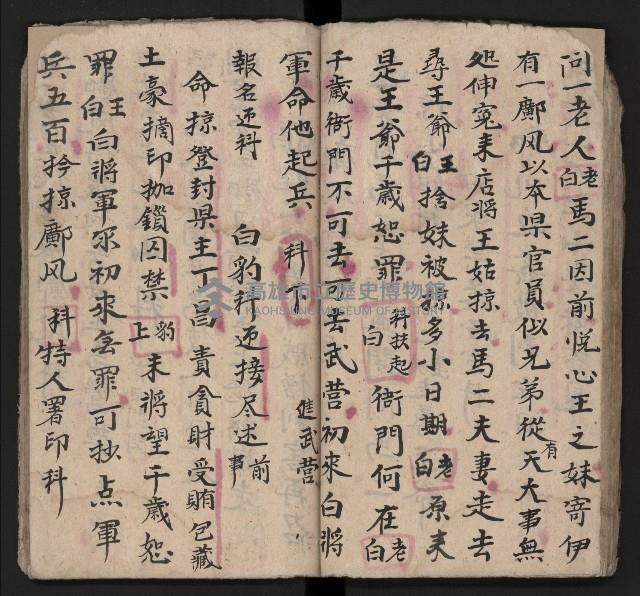 问一老人老白馬二因前悦心王之妹寄伊
有一鄺风以本県官員似兄弟從有天大事無
処伸寃来店將王姑掠去馬二夫妻走去
尋王爺王白捨妹被掠多小日期老白原来
是王爺千歳恕罪科扶起白衙門何在老白
千歳衙門不可去可去武营初來白將
軍命他起兵科下進武营
報名迎科白豹科迎接尽述前事
命掠登封県主丁昌責貪財受賄包藏
土豪摘印枷鎖囚禁豹上末將望千歳恕
罪王白白將軍尔初來無罪可抄点軍
兵五百擒掠鄺风科特人署印科
高雄市立歷史博物館
KAOHSIUNG MUSEUM OF HISTORY